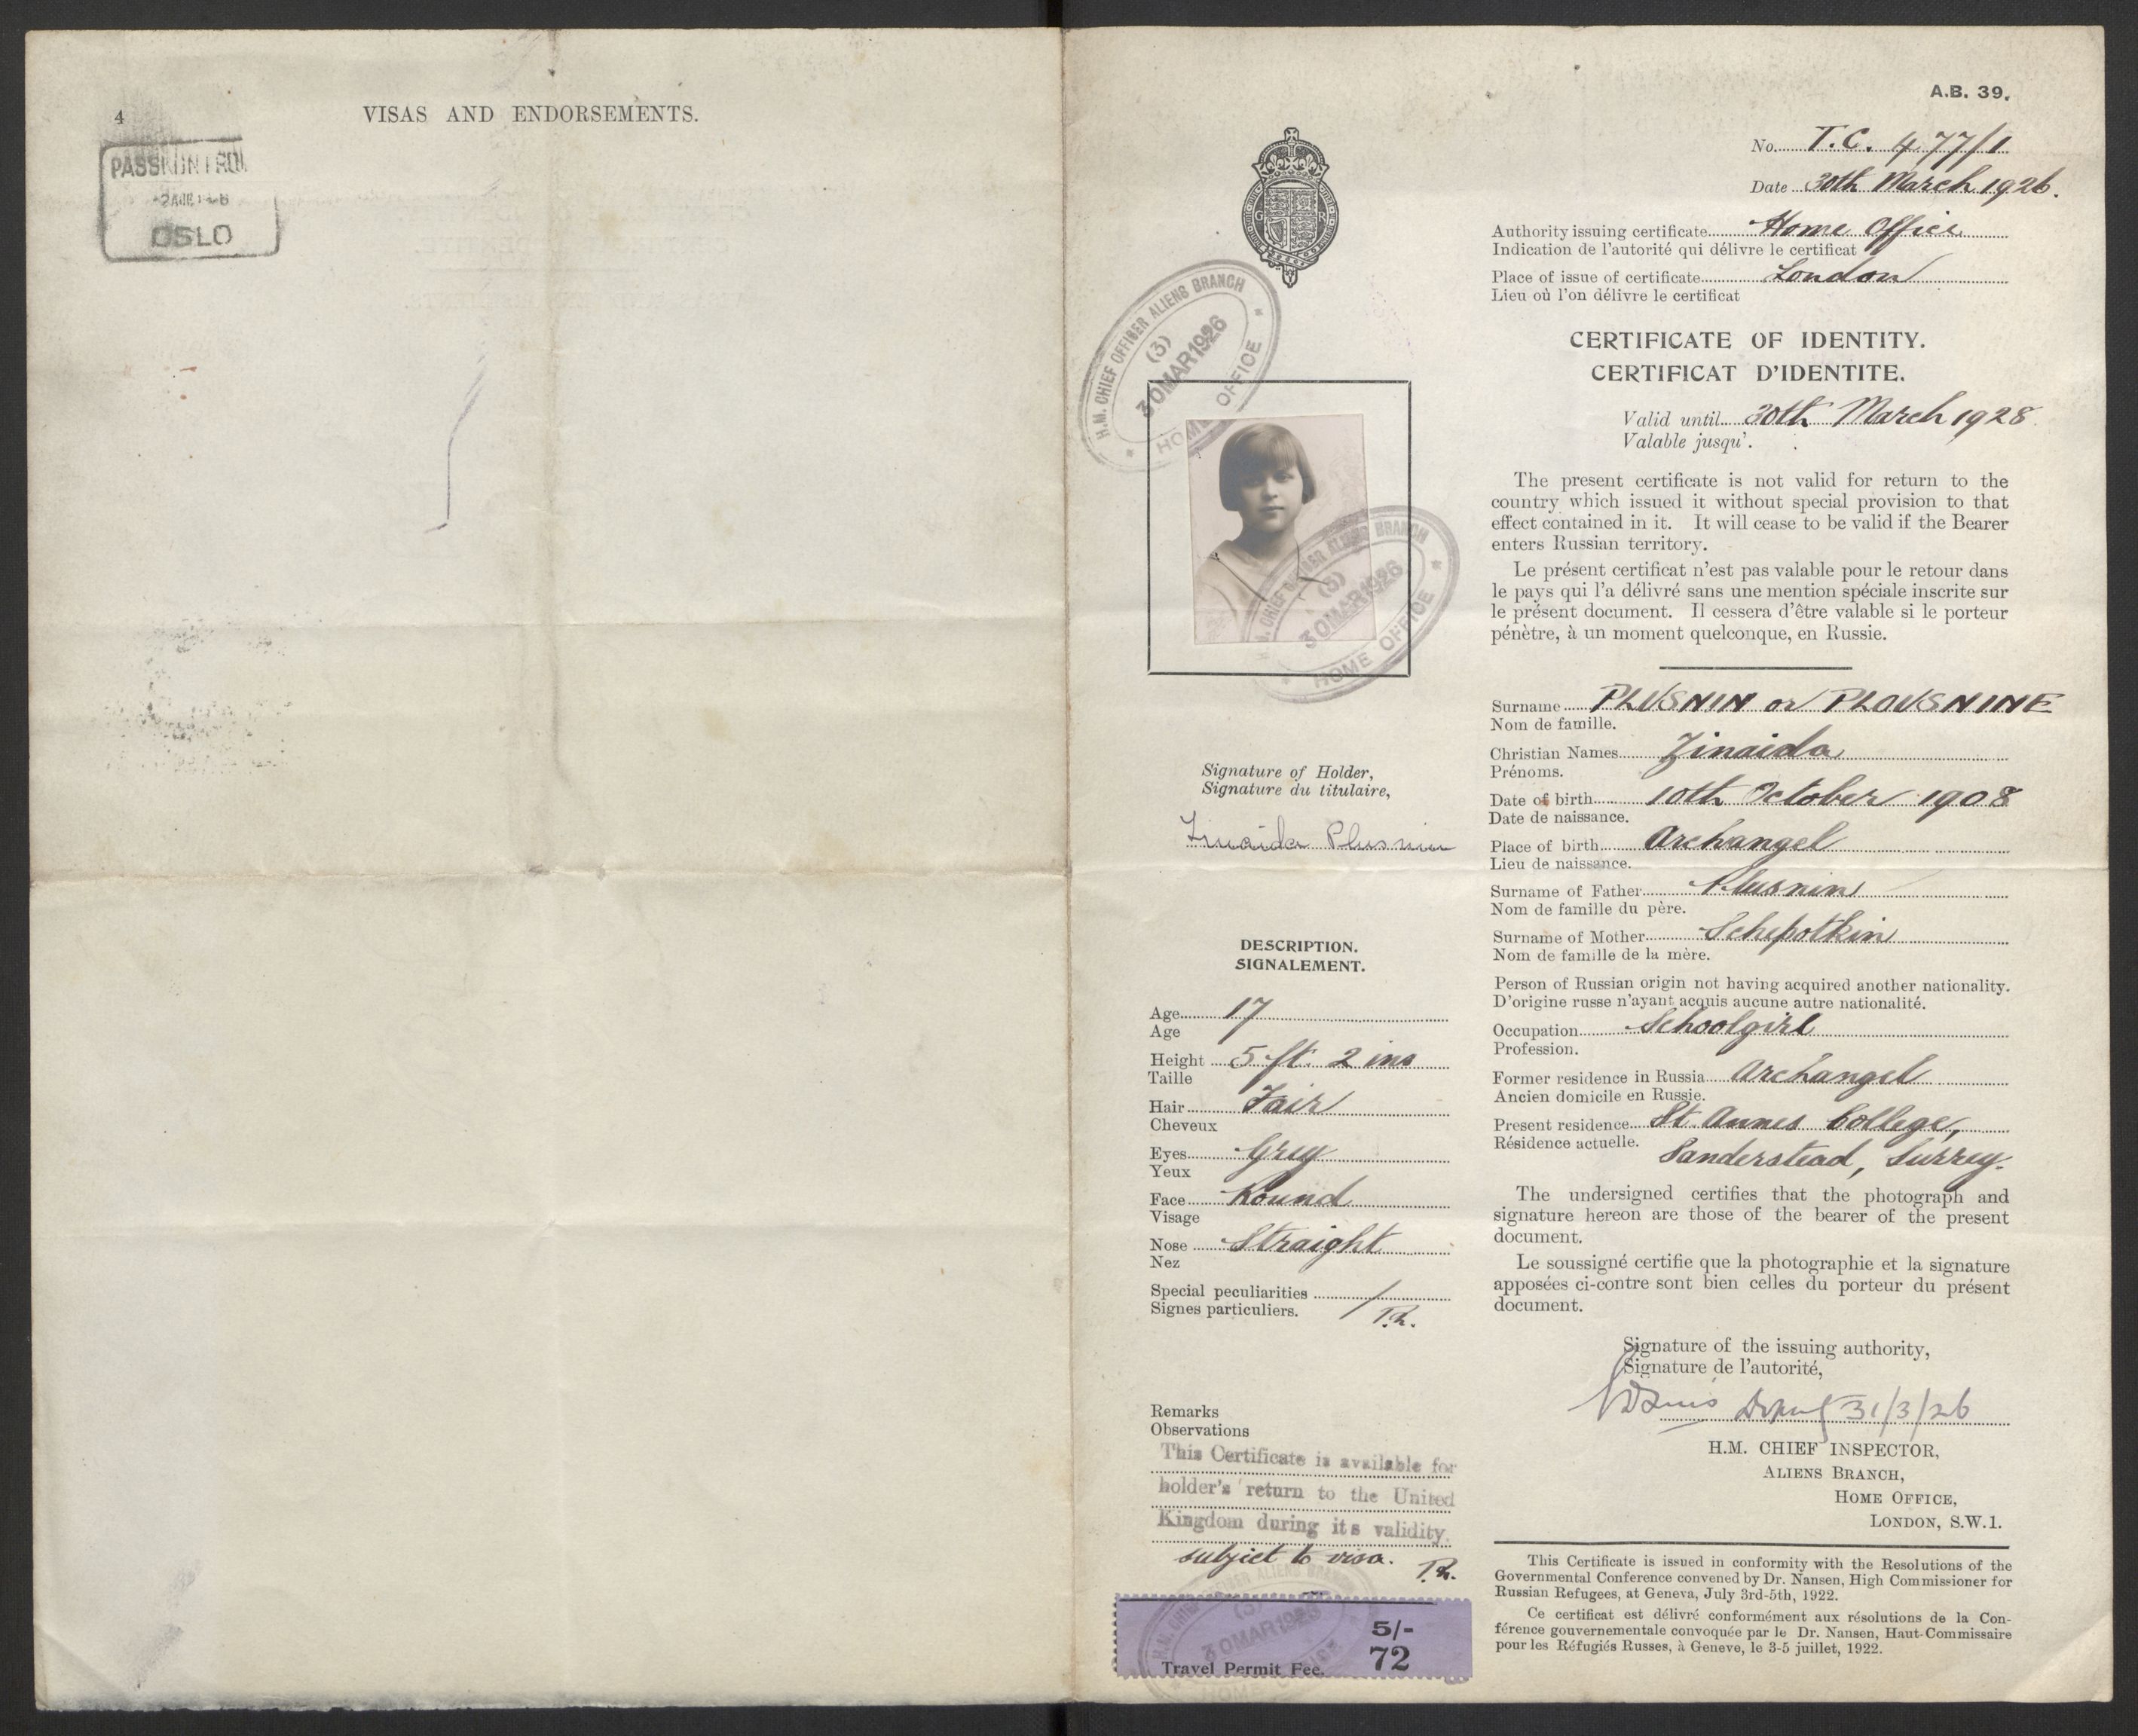 4
VISAS AND ENDORSEMENTS.
PASSKONTROL
OSLO
A.B. 39.
No. T.C. 477/1
Date 30th March 1926.
Authority issuing certificate Home Office
Indication de l'autorité qui délivre le certificat
Place of issue of certificate London
Lieu où l'on délivre le certificat
CERTIFICATE OF IDENTITY.
CERTIFICAT D'IDENTITE.
Valid until 30th March 1928.
Valable jusqu'.
The present certificate is not valid for return to the
country which issued it without special provision to that
effect contained in it. It will cease to be valid if the Bearer
enters Russian territory.
Le présent certificat n'est pas valable pour le retour dans
le pays qui l'a délivré sans une mention spéciale inscrite sur
le présent document. Il cessera d'être valable si le porteur
pénètre, à un moment quelconque, en Russie.
Surname PLUSNIN or PLOUSNINE
Nom de famille.
Christian Names Zinaida
Prénoms.
Date of birth 10th October 1908
Date de naissance.
Place of birth Archangel
Lieu de naissance.
Surname of Father Plusnin
Nom de famille du père.
Surname of Mother Schepotkin
Nom de famille de la mère.
Person of Russian origin not having acquired another nationality.
D'origine russe n'ayant acquis aucune autre nationalité.
Occupation Schoolgirl
Profession.
Former residence in Russia Archangel
Ancien domicile en Russie.
Present residence St. Annes College,
Résidence actuelle. Sanderstead, Surrey.
The undersigned certifies that the photograph and
signature hereon are those of the bearer of the present
document.
Le soussigné certifie que la photographie et la signature
apposées ci-contre sont bien celles du porteur du présent
document.
Signature of the issuing authority,
Signature de l'autorité,
31/3/26
H.M. CHIEF INSPECTOR,
ALIENS BRANCH,
HOME OFFICE,
LONDON, S.W.1.
This Certificate is issued in conformity with the Resolutions of the
Governmental Conference convened by Dr. Nansen, High Commissioner for
Russian Refugees, at Geneva, July 3rd-5th, 1922.
Ce certificat est délivré conformément aux résolutions de la Con-
férence gouvernementale convoquée par le Dr. Nansen, Haut-Commissaire
pour les Réfugiés Russes, à Geneve, le 3-5 juillet, 1922.
G R
H.M. CHIEF OFFICER ALIENS BRANCH
(3)
30 MAR 1926
HOME OFFICE
H.M. CHIEF OFFICER ALIENS BRANCH
(3)
30 MAR 1926
HOME OFFICE
Signature of Holder,
Signature du titulaire,
Zinaida Plusnin
DESCRIPTION.
SIGNALEMENT.
Age 17
Age
Height 5 ft. 2 ins
Taille
Hair Fair
Cheveux
Eyes Grey
Yeux
Face Round
Visage
Nose Straight
Nez
Special peculiarities /
Signes particuliers.
Remarks
Observations
This Certificate is available for
holder's return to the United
Kingdom during its validity.
subject to visa.
H.M. CHIEF OFFICER ALIENS BRANCH
(3)
30 MAR 1926
HOME OFFICE
5/-
72
Travel Permit Fee.